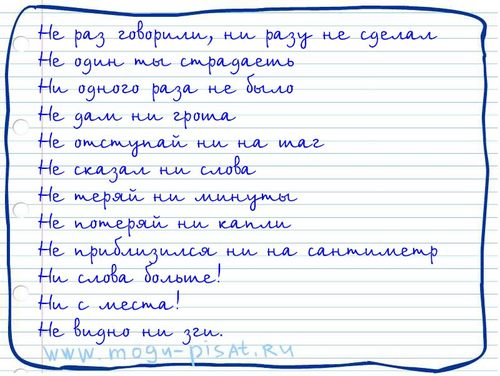 Не раз говорили, ни разу не сделал
Не один ты страдаеть
Ни одного раза не было
Не дам ни гроша
Не отступай ни на шаг
Не сказал ни слова
Не теряй ни минуты
Не потеряй ни капли
Не приблизился ни на сантиметр
Ни слова больше!
Ни с места!
Не видно ни зги.
www.mogu-pisat.ru